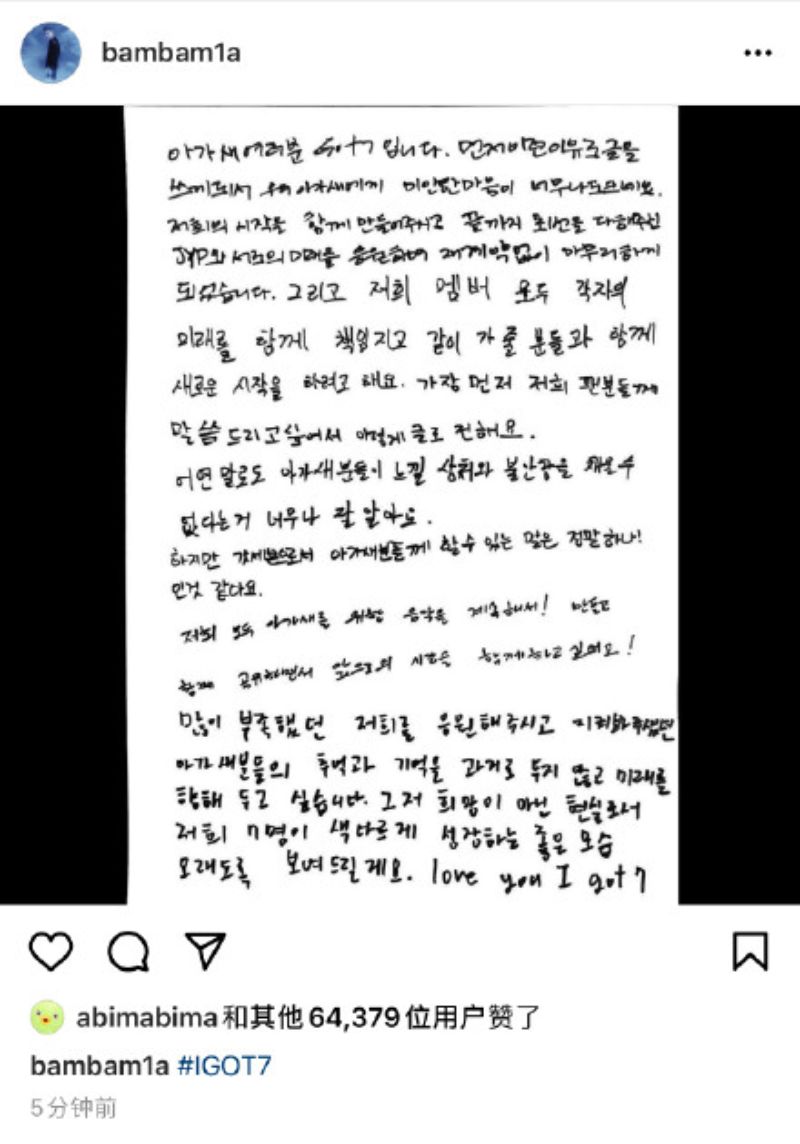 bambam1a
아가새여러분 GOT7 입니다. 먼저 이런이유로글을
쓰게되서 우리 아가새에게 미안한마음이 너무나도크네요.
저희의 시작을 함께 만들어주시고 끝까지 최선을 다해주신
JYP와 서로의 미래를 응원하며 재계약없이 마무리하게
되었습니다. 그리고 저희 멤버 모두 각자의
미래를 함께 책임지고 같이 가 줄 분들과 함께
새로운 시작을 하려고 해요. 가장 먼저 저희 팬분들께
말씀 드리고싶어서 이렇게 글로 전해요.
어떤 말로도 아가새분들이 느낄 상처와 불안감을 채울수
없다는거 너무나 잘 알아요.
하지만 갓세븐으로서 아가새분들께 할수 있는 말은 정말하나!
인것 같다요.
저희 모두 아가새를 위한 음악을 계속해서! 만들고
함께 공유하면서 앞으로의 시간을 함께하고 싶어요!
많이 부족했던 저희를 응원해주시고 지켜봐주셨던
아가새분들의 추억과 기억을 과거로 두지 않고 미래를
향해 두고 싶습니다. 그저 희망이 아닌 현실로서
저희 7명이 색다르게 성장하는 좋은 모습
오래도록 보여드릴게요. love you I got7
abimabima和其他64,379位用户赞了
bambam1a #IGOT7
5分钟前